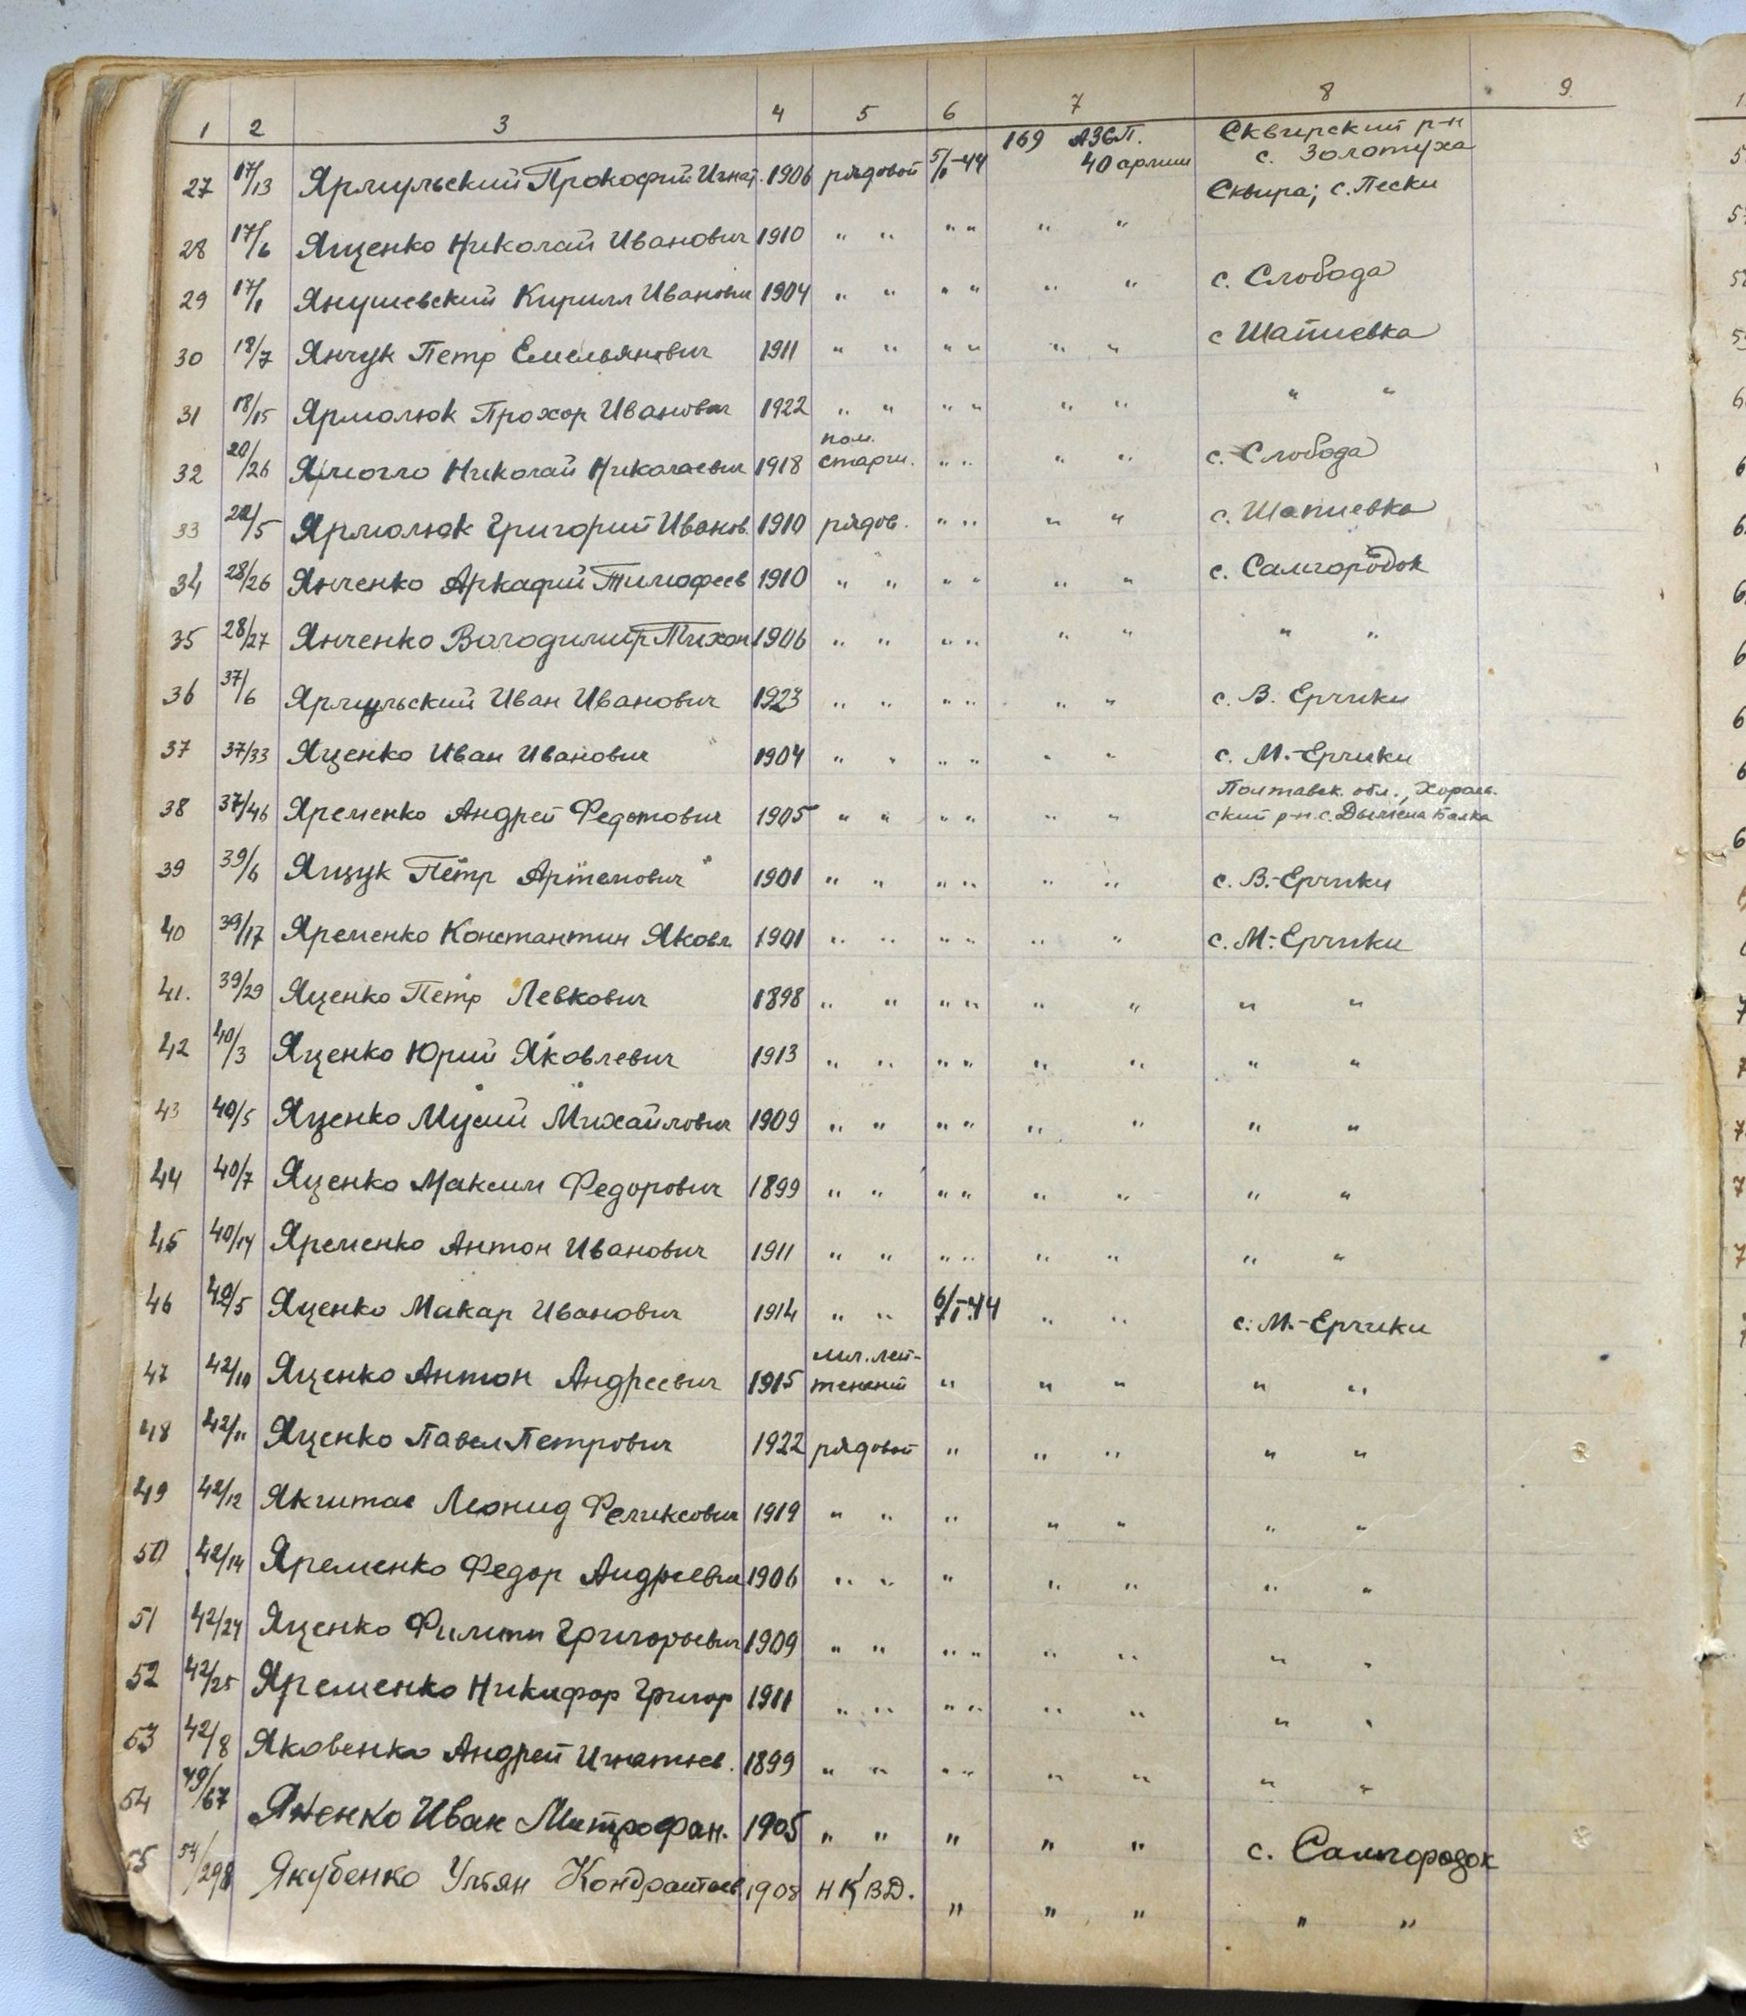 1 2 3 4 5 6 7 8 9
169 АЗСП. Сквирский р-н
27 17/13 Ярмульский Прокофий Игнат. 1906 рядовой 5/I-44 40 армии с. Золотуха
Сквира; с. Пески
28 17/6 Ященко Николай Иванович 1910 " " " " " "
29 17/8 Янушевский Кирилл Иванович 1904 " " " " " " с. Слобода
30 18/7 Янчук Петр Емельянович 1911 " " " " " " с Шапиевка
31 18/15 Ярмолюк Прохор Иванович 1922 " " " " " " " "
пом.
32 20/26 Ярмогло Николай Николаевич 1918 старш. " " " " с. Слобода
33 22/5 Ярмолюк Григорий Иванов. 1910 рядов. " " " " с. Шапиевка
34 28/26 Янченко Аркадий Тимофеев 1910 " " " " " " с. Самгородок
35 28/27 Янченко Володимир Тихон 1906 " " " " " " " "
36 37/6 Ярмульский Иван Иванович 1923 " " " " " " с. В. Ерчики
37 37/33 Яценко Иван Иванович 1904 " " " " " " с. М.-Ерчики
Полтавск. обл., Хороль-
38 37/46 Яременко Андрей Федотович 1905 " " " " " " ский р-н. с. Балка
39 39/6 Ящук Пётр Артемович 1901 " " " " " " с. В.-Ерчики
40 39/17 Яременко Константин Яковл. 1901 " " " " " " с. М.-Ерчики
41. 39/29 Яценко Пётр Левкович 1898 " " " " " " " "
42 40/3 Яценко Юрий Яковлевич 1913 " " " " " " " "
43 40/5 Яценко Мусий Михайлович 1909 " " " " " " " "
44 40/7 Яценко Максим Федорович 1899 " " " " " " " "
45 40/14 Яременко Антон Иванович 1911 " " " " " " " "
46 42/5 Яценко Макар Иванович 1914 " " 6/I-44 " " с. М.-Ерчики
мл. лей-
47 42/10 Яценко Антон Андреевич 1915 тенант " " " " "
48 42/11 Яценко Павел Петрович 1922 рядовой " " " " "
49 42/12 Якштас Леонид Феликсович 1919 " " " " " " "
50 42/14 Яременко Федор Андреевич 1906 " " " " " " "
51 42/24 Яценко Филипп Григорьевич 1909 " " " " " " " "
52 42/25 Яременко Никифор Григор 1911 " " " " " " " "
53 42/8 Яковенко Андрей Игнатьев. 1899 " " " " " " " "
54 49/67 Яненко Иван Митрофан. 1905 " " " " " с. Самгородок
55 54/298 Якубенко Ульян Кондратьев. 1908 НКВД. " " " " "